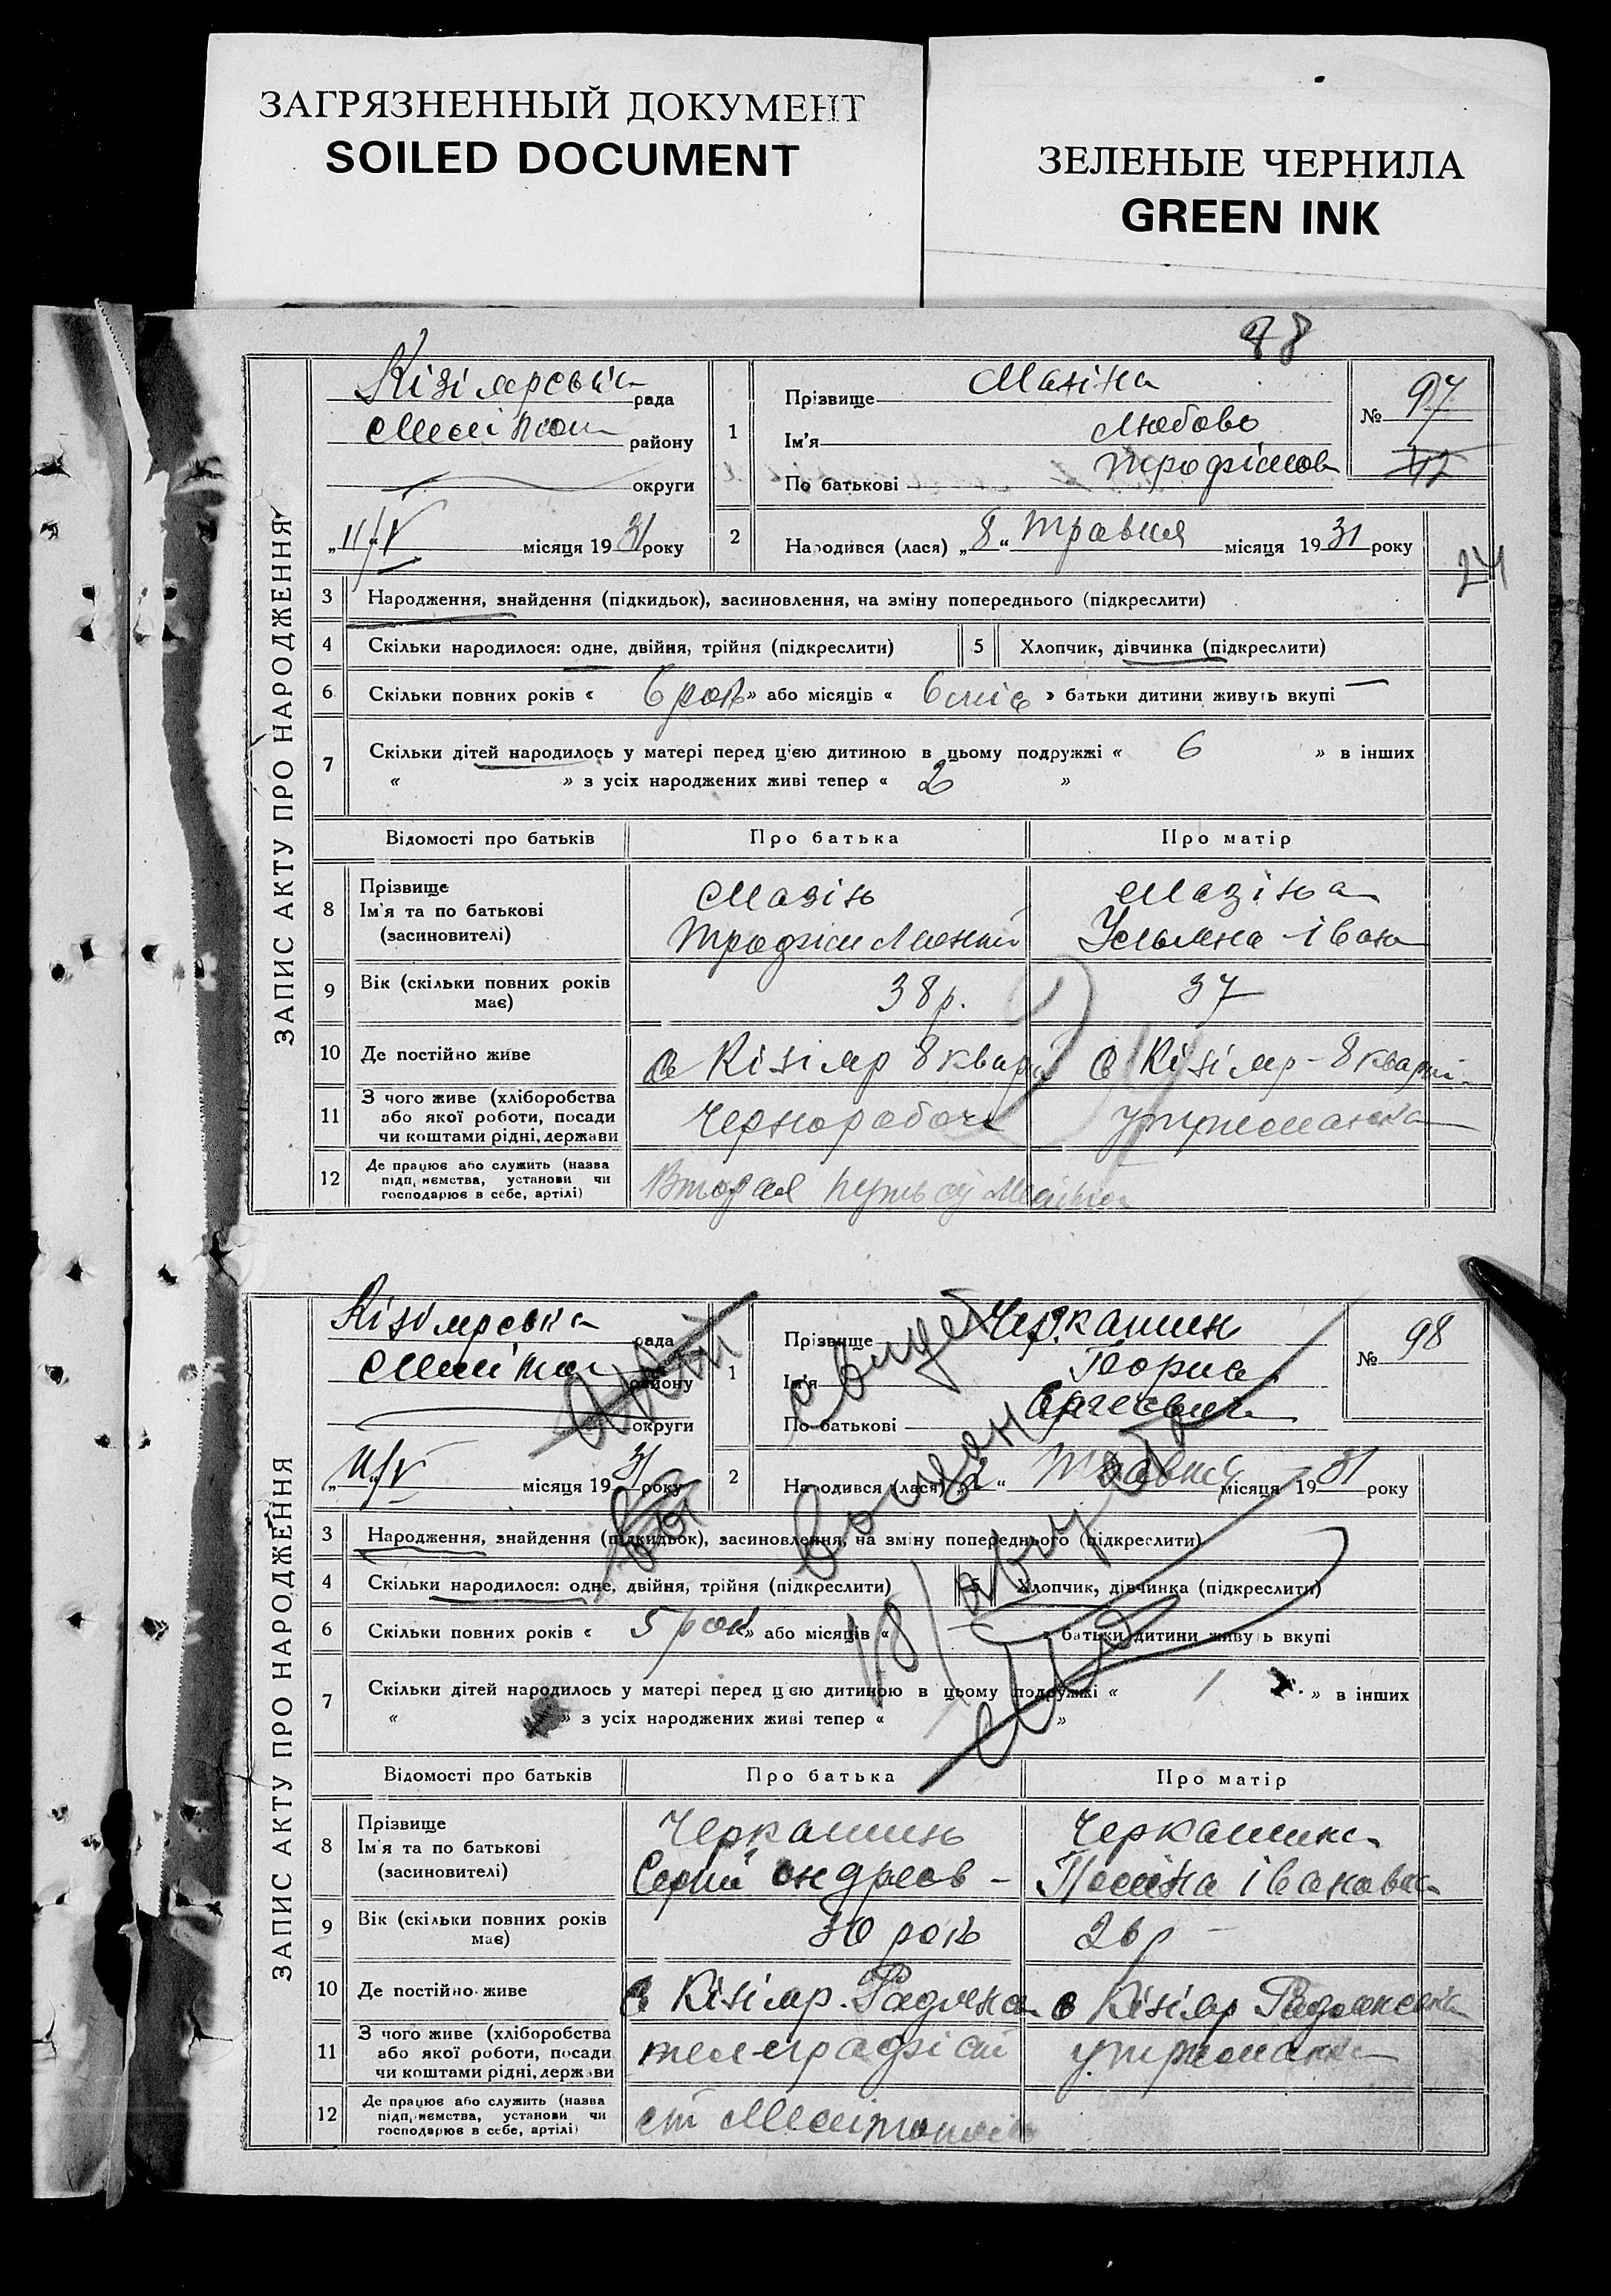 ЗАГРЯЗНЕННЫЙ ДОКУМЕНТ
SOILED DOCUMENT
ЗЕЛЕНЫЕ ЧЕРНИЛА
GREEN INK
88
ЗАПИС АКТУ ПРО НАРОДЖЕННЯ
Кізіярська рада
Мелітоп району
округи
„11/V місяця 1931 року
1 Прізвище Мазіна
Ім'я Любовь
По батькові Трофімов
№ 97
2 Народився (лася) „8“ травня місяця 1931 року
24
3 Народження, знайдення (підкидьок), засиновлення, на зміну попереднього (підкреслити)
4 Скільки народилося: одне, двійня, трійня (підкреслити) 5 Хлопчик, дівчинка (підкреслити)
6 Скільки повних років « 6 рок » або місяців « 6 міс » батьки дитини живуть вкупі —
7 Скільки дітей народилось у матері перед цією дитиною в цьому подружжі « 6 » в інших
« » з усіх народжених живі тепер « 2 »
Відомості про батьків Про батька Про матір
8 Прізвище
Ім'я та по батькові
(засиновителі)
Мазін
Трофім
Мазіна
Ульяна Іван
9 Вік (скільки повних років має) 38 р. 37
10 Де постійно живе с Кізіяр 8 кварт с Кізіяр - 8 кварт
11 З чого живе (хліборобства
або якої роботи, посади
чи коштами рідні, держави
Чернорабоч утриманка
12 Де працює або служить (назва
підприємства, установи чи
господарює в себе, артілі)
Вторая
ЗАПИС АКТУ ПРО НАРОДЖЕННЯ
Кізіярська рада
Мелітоп району
округи
„11/V місяця 1931 року
1 Прізвище Черкашин
Ім'я Борис
По батькові Сергеевич
№ 98
2 Народився (лася) „2“ Травня місяця 1931 року
3 Народження, знайдення (підкидьок), засиновлення, на зміну попереднього (підкреслити)
4 Скільки народилося: одне, двійня, трійня (підкреслити) 5 Хлопчик, дівчинка (підкреслити)
6 Скільки повних років « 5 рок » або місяців « — » батьки дитини живуть вкупі
7 Скільки дітей народилось у матері перед цією дитиною в цьому подружжі « 1 » в інших
« » з усіх народжених живі тепер « »
Відомості про батьків Про батька Про матір
8 Прізвище
Ім'я та по батькові
(засиновителі)
Черкашин
Сергій Андреєв -
Черкашина
Поліна Івановна
9 Вік (скільки повних років має) 30 рок 26 р -
10 Де постійно живе с Кізіяр. Радянська с Кізіяр Радянська
11 З чого живе (хліборобства
або якої роботи, посади
чи коштами рідні, держави
телеграфіст утриманка
12 Де працює або служить (назва
підприємства, установи чи
господарює в себе, артілі)
ст Мелітополь